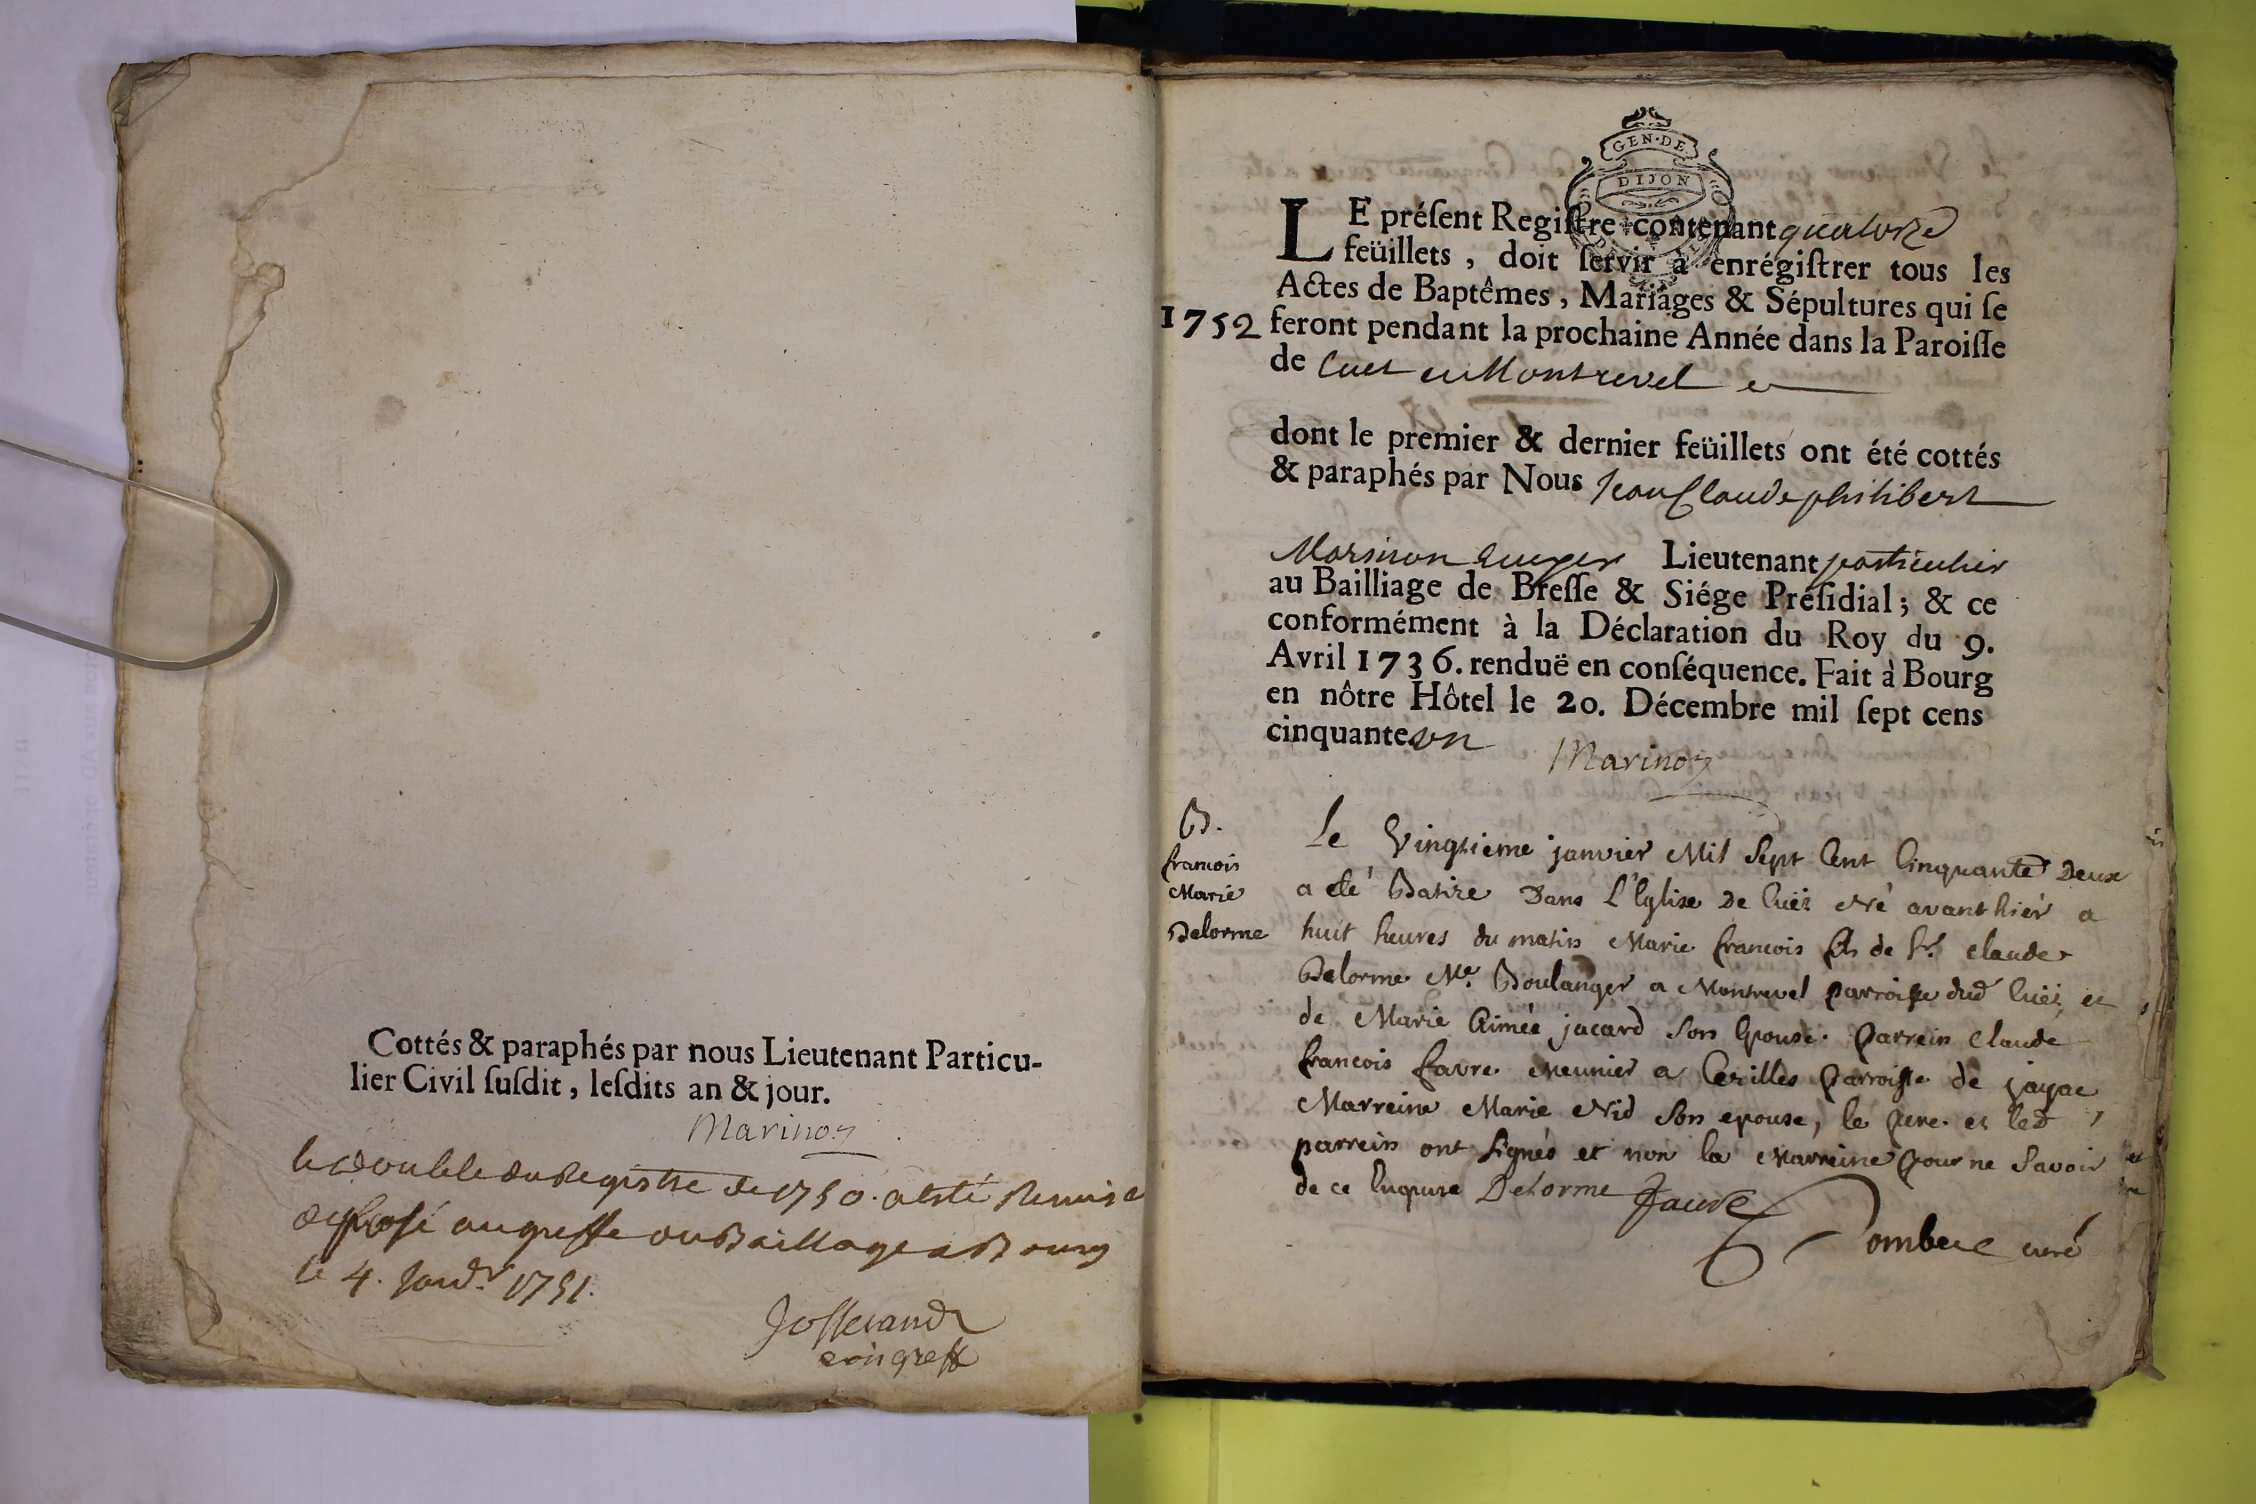 Cottés & paraphés par nous Lieutenant Particu-
lier Civil ſuſdit, leſdits an & jour.
Marinon
le double du Registre de 1750. a esté Remis e
deposé au greffe du Baillage a Bourg
le 4. Janvr. 1751.
Josserand
GEN·DE
DIJON
LE préſent Regiſtre contenant quatorze
feüillets, doit ſervir à enrégiſtrer tous les
Actes de Baptêmes, Mariages & Sépultures qui ſe
1752 feront pendant la prochaine Année dans la Paroiſſe
de Cuet en Montrevel
dont le premier & dernier feüillets ont été cottés
& paraphés par Nous Jean Claude philibert
Marinon Lieutenant particulier
au Bailliage de Breſſe & Siége Préſidial; & ce
conformément à la Déclaration du Roy du 9.
Avril 1736. renduë en conſéquence. Fait à Bourg
en nôtre Hôtel le 20. Décembre mil ſept cens
cinquante un
Marinon
B.
francois
Marie
Delorme
Le Vingtieme janvier Mil Sept Cent Cinquante Deux
a eté Batize Dans L'Eglise De Cuët Né avanthiér a
huit heures du matin Marie francois fils de Sr. claude
Delorme Me. Boulanger a Montrevel parroisse dud Cuët et
de Marie Aimée jacard Son Epouse. parrein Claude
francois favre meunier a Cezilles parroisse de jayac
Marreine Marie Nid Son epouse, le pere et led
parrein ont Signés et non la marreine pour ne Savoir
de ce Enquise Delorme favre
Pombet curé